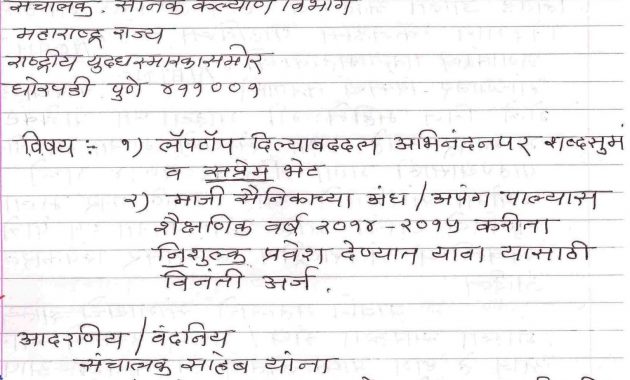 संचालक, सैनिक कल्याण विभाग
महाराष्ट्र राज्य
राष्ट्रीय युध्दस्मारकासमोर
घोरपडी पुणे ४११००१
विषय :- १) लॅपटॉप दिल्याबददल अभिनंदनपर शब्दसुमं
व सप्रेम भेट
२) माजी सैनिकाच्या अंध / अपंग पाल्यास
शैक्षणिक वर्ष २०१४-२०१५ करीता
निशुल्क प्रवेश देण्यात यावा यासाठी
विनंती अर्ज.
आदरणिय / वंदनिय
संचालक साहेब यांना